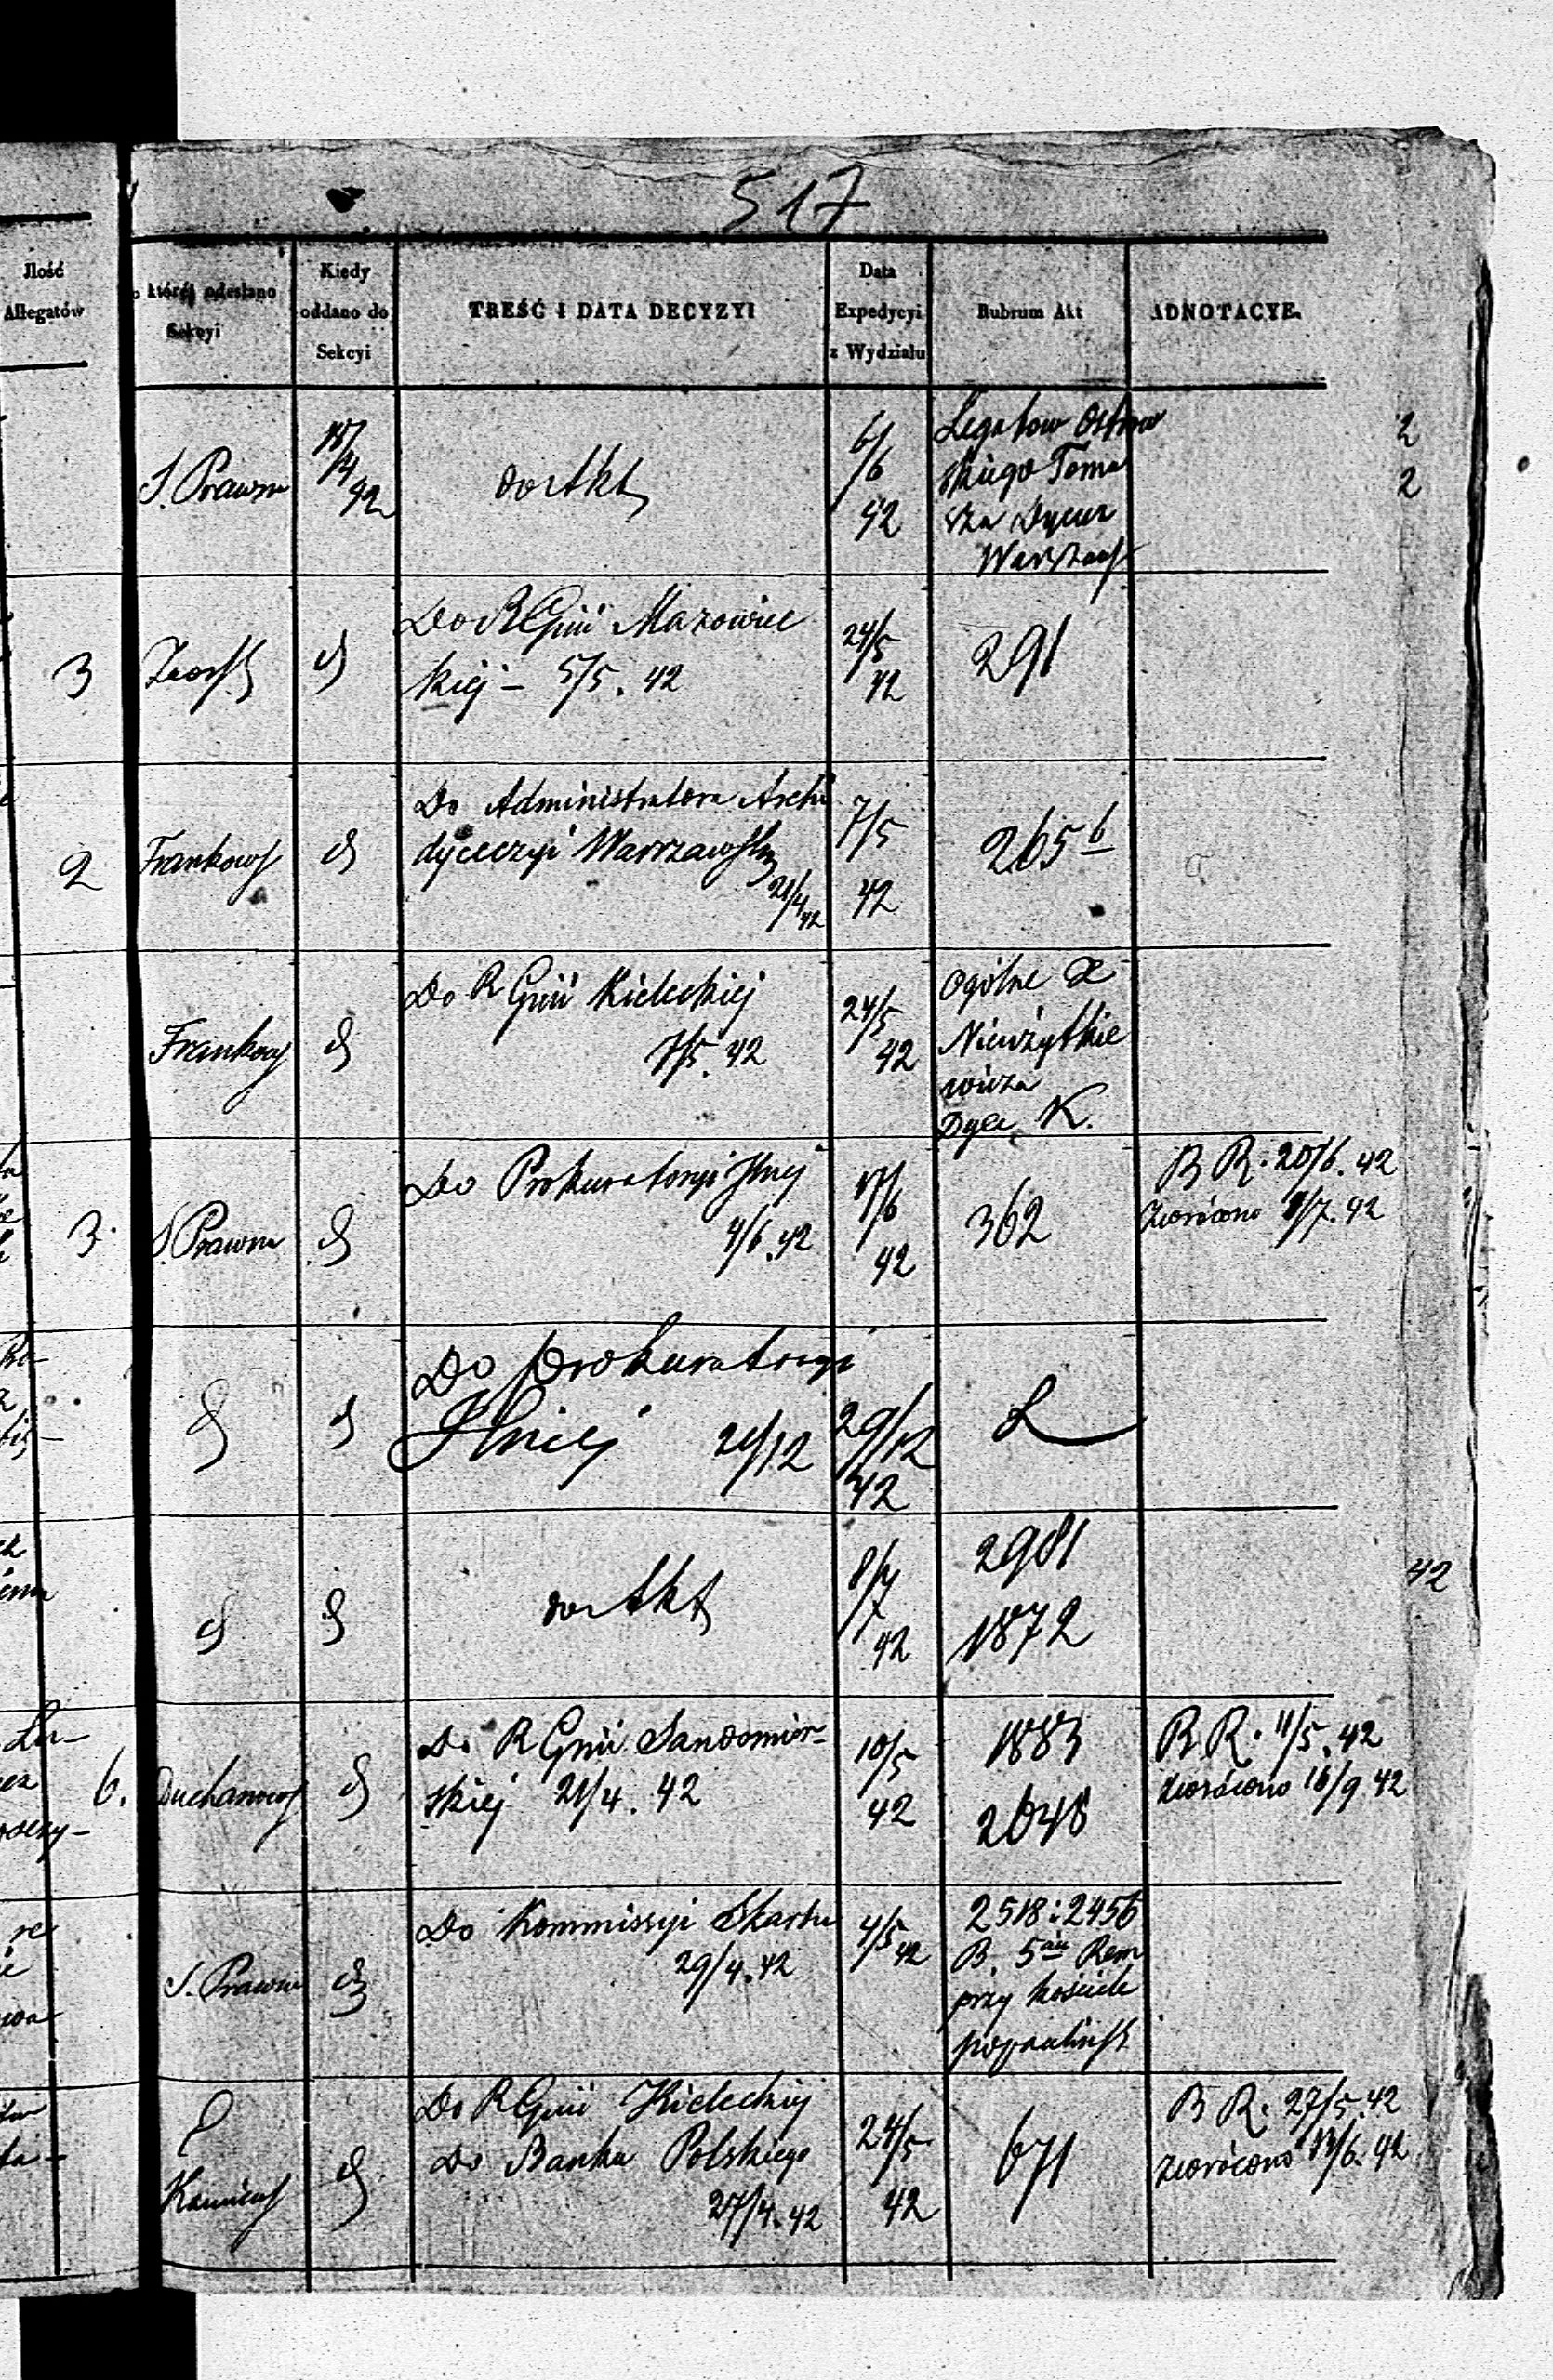 517
Jlość
Allegatów
któréj odesłano
Sekcyi
Kiedy
oddano do
Sekcyi
TREŚĆ I DATA DECYZYI
Data
Expedycyi
z Wydziału
Rubrum Akt
ADNOTACYE.
S. Prawna
18/4 42
do Akt
6/6
42
Legatow Ostrow
skiego Toma
sza Dyecez
Warszaws
3
Do R Gnii Mazowiec
kiej – 5/5. 42
24/5
42
291
2
Frankows
Do Administratora Archi
dyecezyi Warszawskiej
21/4 42
7/5
42
265 b
Frankows
Do R Gnii Kieleckiej
7/5. 42
24/5
42
Ogólne X
Niewżytkie
wicza
Dyec. K.
3.
S. Prawna
Do Prokuratoryi Jlnej
4/6. 42
17/6
42
362
B R. 20/6. 42
zwrócono 8/7. 42
Do Prokuratoryi
Jlniej 21/12
29/12
42
do Akt
42
2981
1872
6.
Duchanows
Do R Gnii Sandomier–
skiej 21/4. 42
10/5
42
1883
2048
B R. 11/5. 42
zwrócono 16/9 42
S. Prawna
Do Kommissyi Skarbu
29/4. 42
4/5 42
2518: 2456
B. 5
przy kościele
Kamińs
Do R Gnii Kieleckiej
Do Banku Polskiego
27/4. 42
24/5
42
671
B R. 27/5. 42
zwrócono 12/6. 42
2
2
42